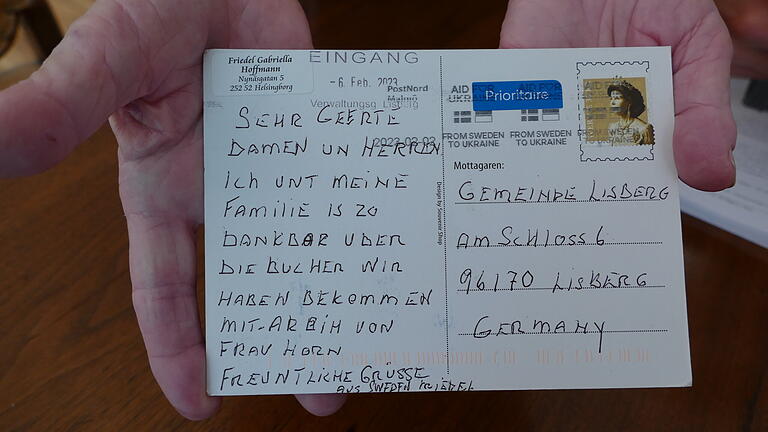 Friedel Gabriella
Hoffmann
Nyndsgatan 5
252 52 Helsingborg
EINGANG
- 6. Feb. 2023
Verwaltungsg Lisberg
SEHR GEERTE
DAMEN UN HERREN
ICH UNT MEINE
FAMILIE IS ZO
DANKBAR UBER
DIE BUCHER WIR
HABEN BEKOMMEN
MIT-ARBIH VON
FRAU HORN
FREUNTLICHE GRÜSSE
AUS SWEDEN FRIEDEL
Design by Souvenir Shop
PostNord
Malmö
2023-02-02
AID FOR
UKRAINE
FROM SWEDEN
TO UKRAINE
AID FOR
UKRAINE
FROM SWEDEN
TO UKRAINE
AID FOR
UKRAINE
FROM SWEDEN
TO UKRAINE
Prioritaire
Mottagaren:
GEMEINDE LISBERG
AM SCHLOSS 6
96170 LISBERG
GERMANY